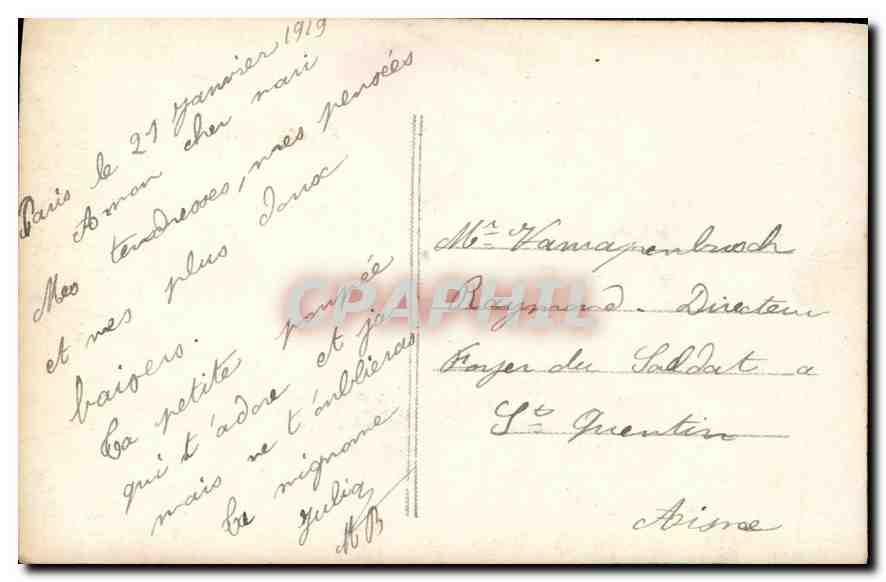 Paris le 21 Janvier 1919
A mon cher mari
Mes tendresses, mes pensées
et mes plus doux
baisers.
Ta petite poupée
qui t'adore et ja
mais ne t'oublieras
Ta mignone
Julia
MB
Mr
Raymond. Directeur
Foyer du Soldat a
St Quentin
Aisne
CPAPHIL